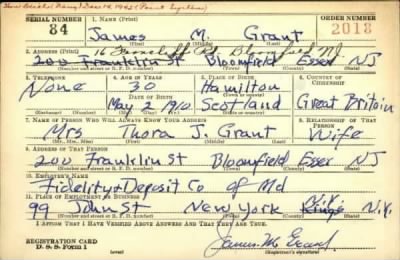 SERIAL NUMBER 1. NAME (Print) ORDER NUMBER
84 James M. Grant 2018
(First) (Middle) (Last)
2. ADDRESS (Print) 16 Bloomfield NJ
200 Franklin St Bloomfield Essex NJ
(Number and street or R. F. D. number) (Town) (County) (State)
3. TELEPHONE 4. AGE IN YEARS 5. PLACE OF BIRTH 6. COUNTRY OF CITIZENSHIP
None 30 Hamilton
DATE OF BIRTH
May 2 1910 Scotland Great Britain
(Mo.) (Day) (Yr.) (State or country)
7. NAME OF PERSON WHO WILL ALWAYS KNOW YOUR ADDRESS 8. RELATIONSHIP OF THAT PERSON
Mrs Thora J. Grant Wife
(Mr., Mrs., Miss) (First) (Middle) (Last)
9. ADDRESS OF THAT PERSON
200 Franklin St Bloomfield Essex NJ
(Number and street or R. F. D. number) (Town) (County) (State)
10. EMPLOYER'S NAME
Fidelity & Deposit Co of Md
11. PLACE OF EMPLOYMENT OR BUSINESS
99 John St New York N.Y. Kings N.Y.
(Number and street or R. F. D. number) (Town) (County) (State)
I AFFIRM THAT I HAVE VERIFIED ABOVE ANSWERS AND THAT THEY ARE TRUE.
REGISTRATION CARD
D. S. S. Form 1 (over) James M Grant
(Registrant's signature)